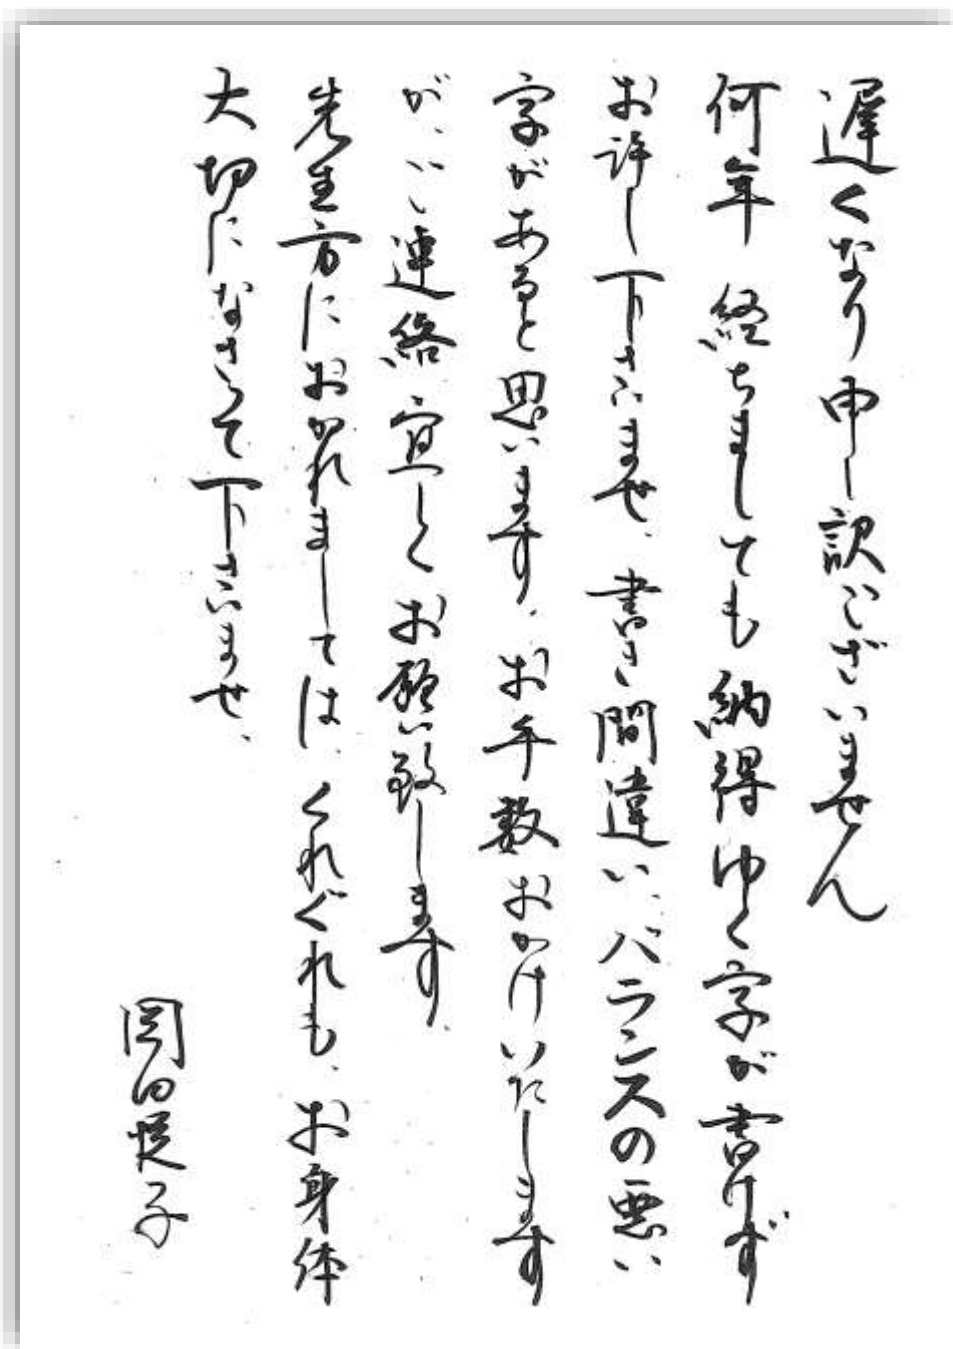 遅くなり申し訳ございません
何年経ちましても納得ゆく字が書けず
お許し下さいませ、書き間違い、バランスの悪い
字があると思います、お手数おかけいたします
が、ご連絡宜しくお願い致します、
先生方におかれましては、くれぐれも、お身体
大切になさって下さいませ、
岡田悦子